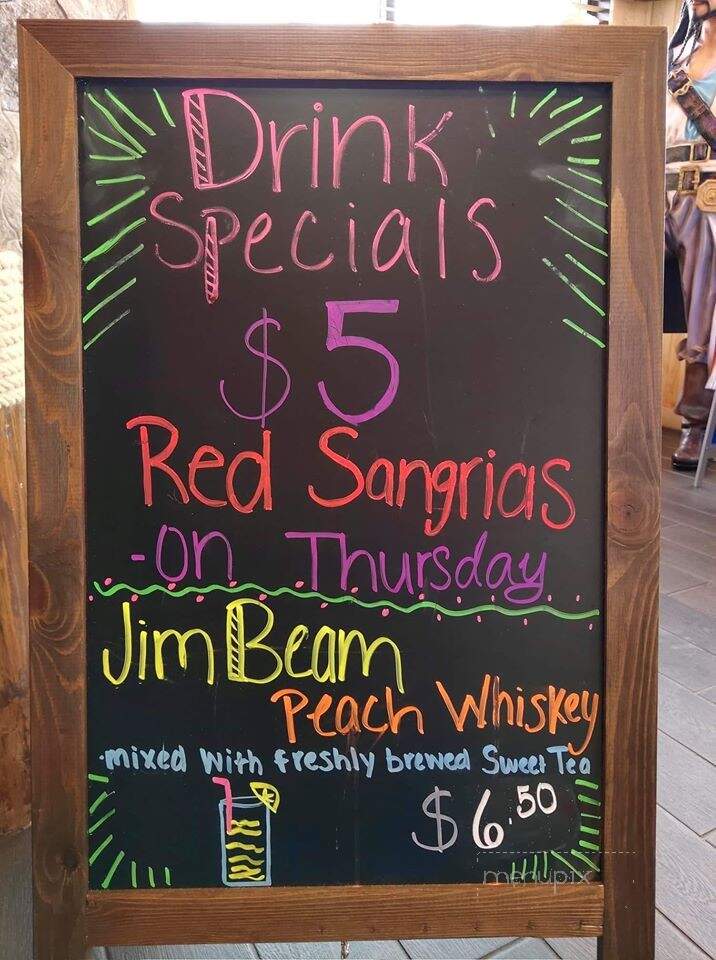 Drink
Specials
$5
Red Sangrias
-on Thursday
Jim Beam
Peach Whiskey
·mixed with freshly brewed Sweet Tea
$6.50
menupix